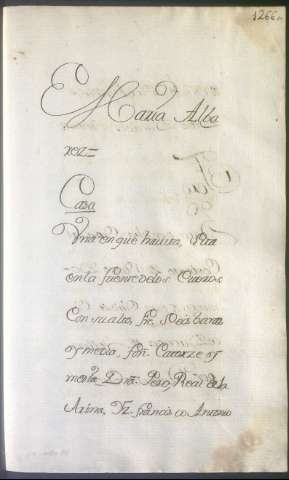 1266
María Alba
rez=
Casa
Vna en que hauita, sita
en la fuente de los
Con su alto, fte. Seis baras
y media, fdo. Catorze y
media, Dra. Real de la
Azina, Yz. francisco Antonio